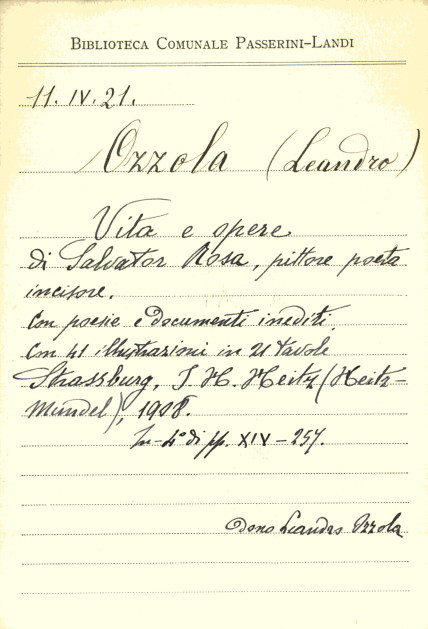 BIBLIOTECA COMUNALE PASSERINI-LANDI
11. IV. 21.
Ozzola (Leandro)
Vita e opere
di Salvator Rosa, pittore poeta
incisore.
Con poesie e documenti inediti.
Con 41 illustrazioni in 21 tavole
Strassburg, J. H. Heitz (Heitz-
Mündel), 1908.
In-4° di pp. XIV-257.
dono Leandro Ozzola